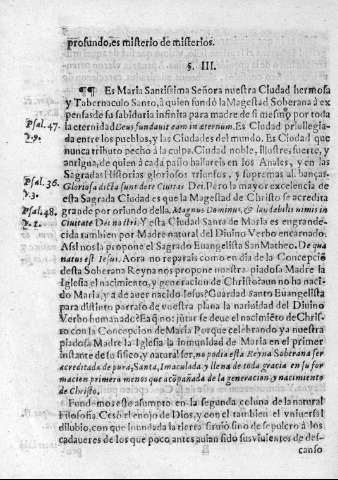 profundo, es misterio de misterios.
§. III.
¶¶ Es Maria Santissima Señora nuestra Ciudad hermosa
y Tabernaculo Santo, à quien fundò la Magestad Soberana à ex
pensas de su sabiduria infinita para madre de si mesmo por toda
Psal. 47. la eternidad Deus fundavit eam in eternum. Es Ciudad priuilegia-
da entre los pueblos, y las Ciudades del mundo. Es Ciudad que
nunca tributo pechò à la culpa. Ciudad noble, illustre, fuerte, y
antigua, de quien à cada passo hallareis en los Anales, y en las
Psal. 36. Sagradas Historias gloriosos triunfos, y supremas alabanças.
Gloriosa dicta sunt de te Ciuitas Dei. Pero la mayor excelencia de
Psal. 48. esta Sagrada Ciudad es que la Magestad de Christo se acredita
grande por oriundo della. Magnus Dominus, & laudabilis nimis in
Ciuitate Dei nostri. Y esta Ciudad Santa de Maria es engrande-
cida tambien por Madre natural del Diuino Verbo encarnado.
Assi nos la propone el Sagrado Euangelista San Matheo. De qua
natus est Iesus. Aora no reparais como en dia de la Concepciō
desta Soberana Reyna nos propone nuestra piadosa Madre la
Iglesia el nacimiento, y generacion de Christo? aun no ha naci-
do Maria, y à de auer nacido Iesus? Guardad santo Euangelista
para distinto parrafo de vuestra plana la natiuidad del Diuino
Verbo humanado? Ea q̄ no: jūtar se deue el nacimiēto de Chris-
to con la Concepcion de Maria Porque celebrando ya nuestra
piadosa Madre la Iglesia la inmunidad de Maria en el primer
instante de su fisico, y natural ser, no podia esta Reyna Soberana ser
acreditada de pura, Santa, Imaculada y llena de toda gracia en su for
macion primero menos que acōpañada de la generacion y nacimiento
de Christo.
Fundemos este asumpto en la segunda coluna de la natural
Filosofia. Cesò el enojo de Dios, y con el tambien el vniuersal
dilubio, con que inundada la tierra siruiò sino de sepulcro à los
cadaueres de los que poco antes auian sido sus viuientes de des-
canso